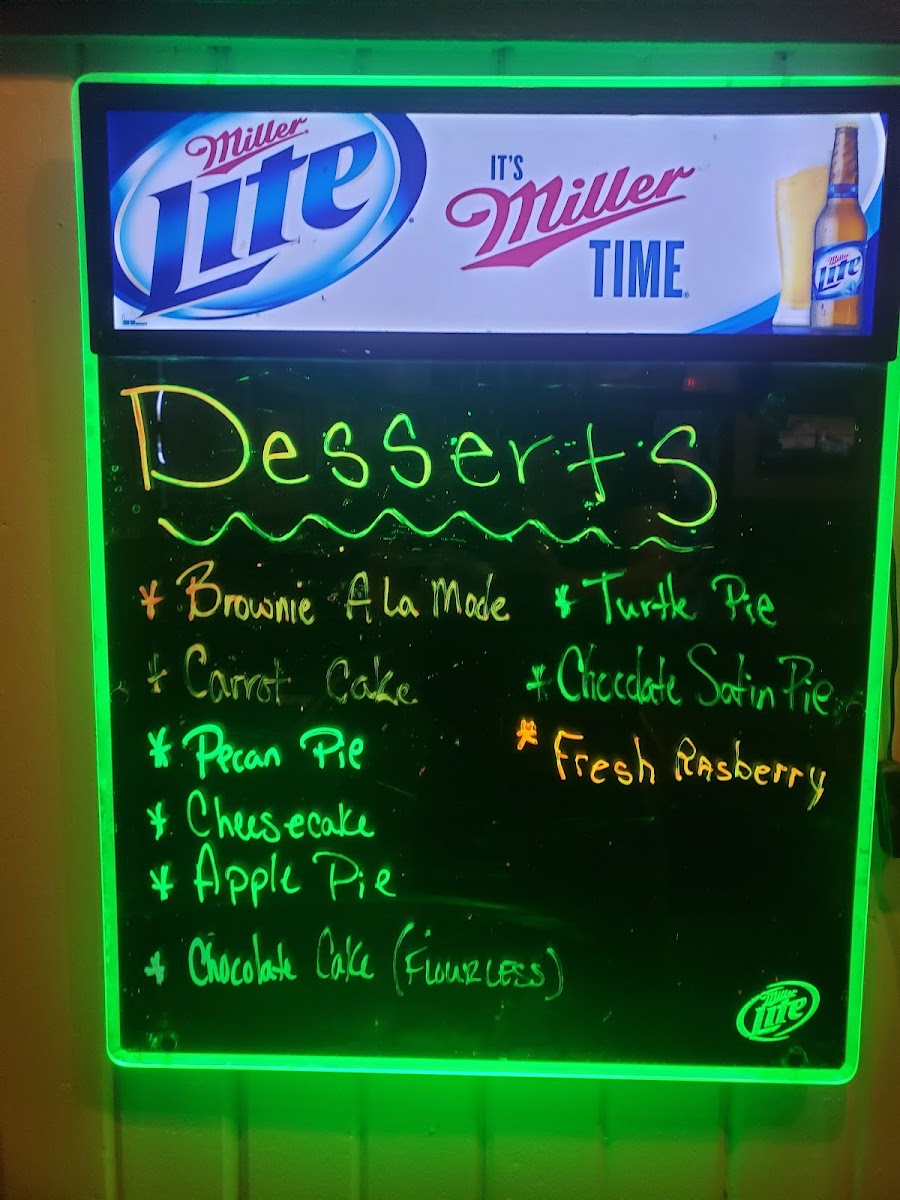 Miller
Lite
IT'S
Miller
TIME
Miller
Lite
Desserts
* Brownie A La Mode
* Carrot Cake
* Pecan Pie
* Cheesecake
* Apple Pie
* Chocolate Cake (FLOURLESS)
* Turtle Pie
* Chocolate Satin Pie
* Fresh Rasberry
Miller
Lite